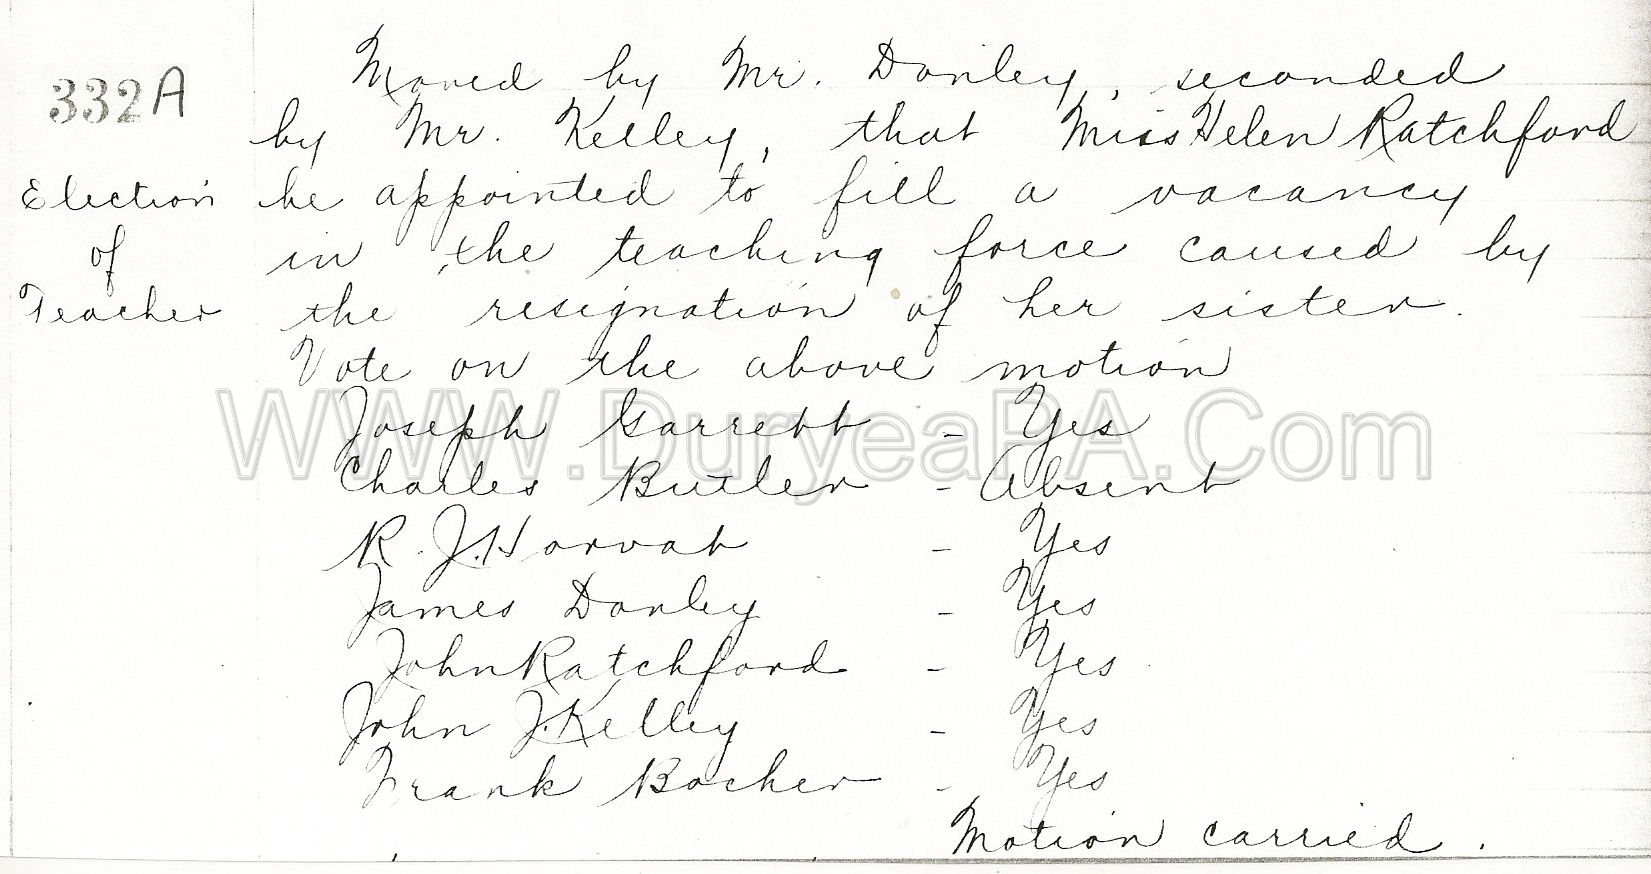 332A
Election
of
Teacher
Moved by Mr. Donley, seconded
by Mr. Kelley, that Miss Helen Ratchford
be appointed to fill a vacancy
in the teaching force caused by
the resignation of her sister.
Vote on the above motion
Joseph Garrett - Yes
Charles Butler - Absent
R. J. Horvat - Yes
James Donley - Yes
John Ratchford - Yes
John J. Kelley - Yes
Frank Bocher - Yes
Motion carried.
WWW.DuryeaPA.Com